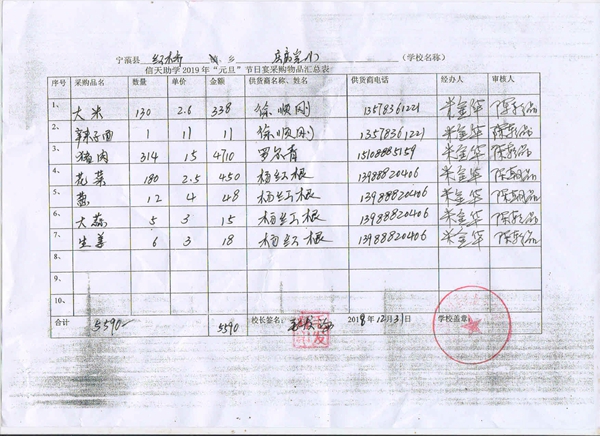 宁蒗县 红桥 乡 （学校名称）
信天助学2019年“元旦”节日宴采购物品汇总表
序号 采购品名 数量 单价 金额 供货商名称、姓名 供货商电话 经办人 审核人
1、 大米 130 2.6 338 徐顺刚 13578361221 米金华
2、 辣子面 1 11 11 徐顺刚 13578361221 米金华
3、 猪肉 314 15 4710 15108885159 米金华
4、 花菜 180 2.5 450 杨红根 13988820406 米金华
5、 葱 12 4 48 杨红根 13988820406 米金华
6、 大蒜 5 3 15 杨红根 13988820406 米金华
7、 生姜 6 3 18 杨红根 13988820406 米金华
7、
8、
9、
10、
合计 5590 5590 校长签名： 2018年12月31日 学校盖章：